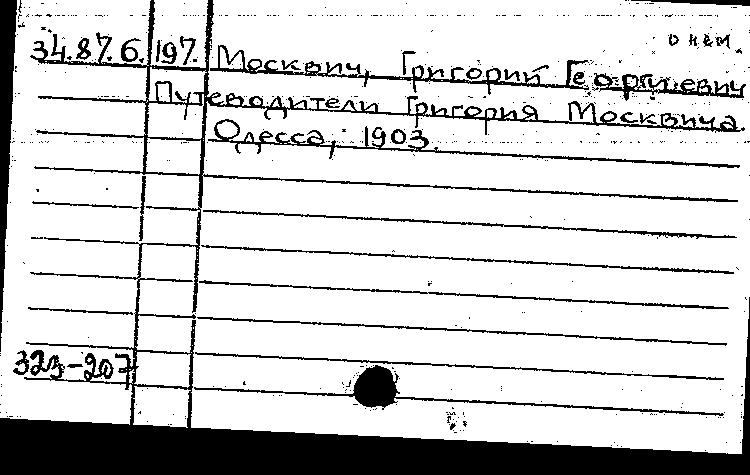 34.87.6. 197. Москвич, Григорий Георгиевич
Путеводители Григория Москвича.
Одесса, 1903.
323-207